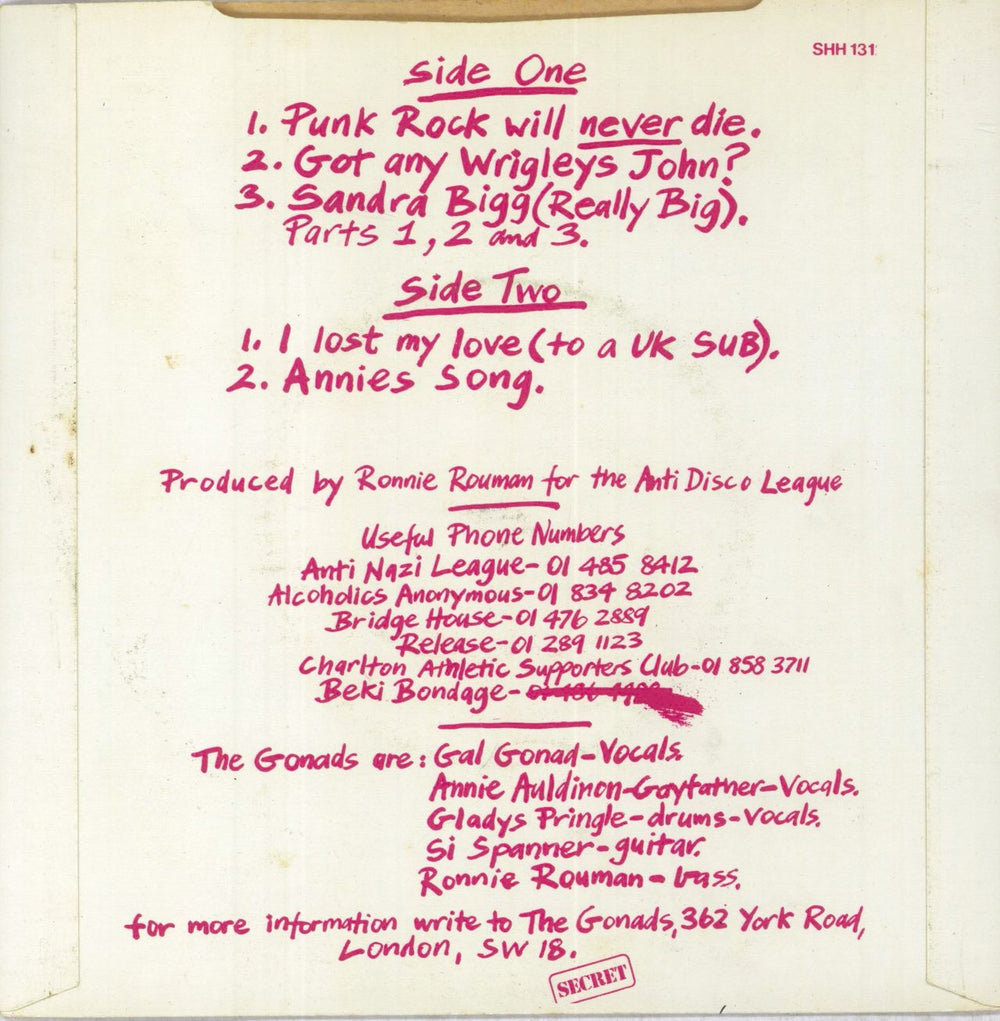 SHH 131
Side One
1. Punk Rock will never die.
2. Got any Wrigleys John?
3. Sandra Bigg (Really Big).
Parts 1, 2 and 3.
Side Two
1. I lost my love (to a UK SUB).
2. Annies Song.
Produced by Ronnie Rouman for the Anti Disco League
Useful Phone Numbers
Anti Nazi League - 01 485 8412
Alcoholics Anonymous - 01 834 8202
Bridge House - 01 476 2889
Release - 01 289 1123
Charlton Athletic Supporters Club - 01 858 3711
Beki Bondage -
The Gonads are: Gal Gonad - Vocals.
Annie Auldinon-Gayfather - Vocals.
Gladys Pringle - drums - vocals.
Si Spanner - guitar.
Ronnie Rouman - bass.
for more information write to The Gonads, 362 York Road,
London, SW 18.
SECRET